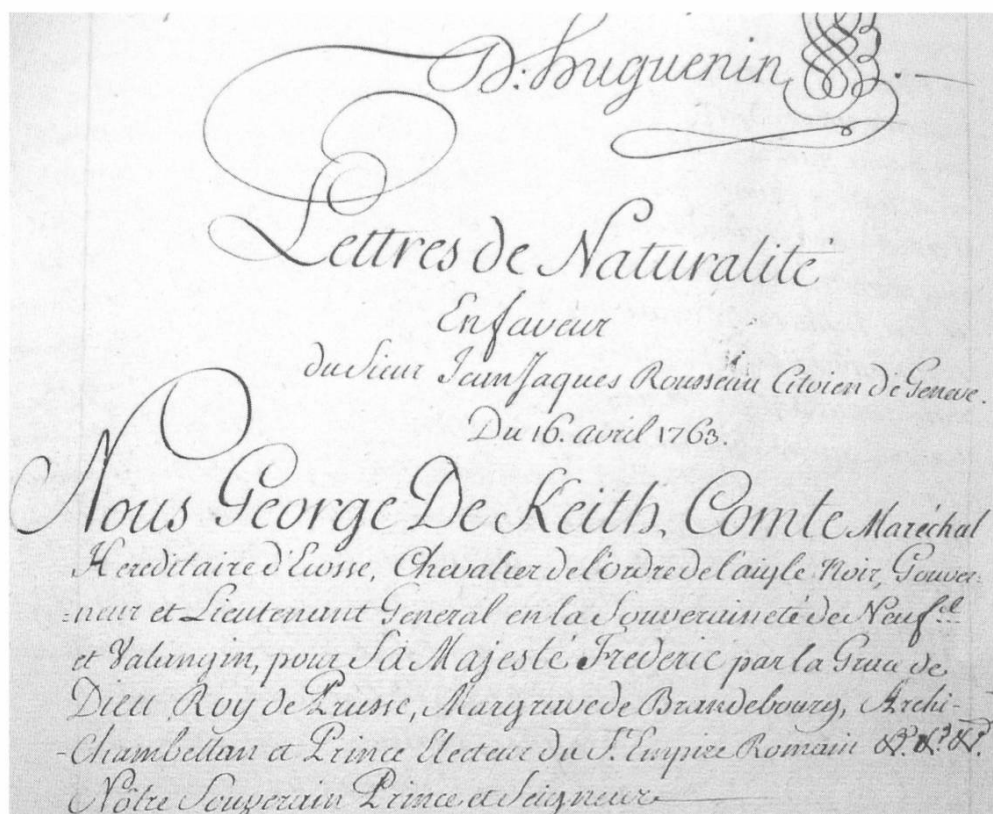 D: huguenin
Lettres de Naturalité
En faveur
du Sieur Jean Jaques Rousseau Citoien de Geneve.
Du 16. avril 1763.
Nous George De Keith, Comte Maréchal
Hereditaire d'Ecosse, Chevalier de l'ordre de l'aigle Noir, Gouver=
=neur et Lieutenant General en la Souveraineté de Neuf.el
et Valangin, pour Sa Majesté Frederic par la Grace de
Dieu Roy de Prusse, Margrave de Brandebourg, Archi-
-Chambellan et Prince Electeur du St. Empire Romain &c. &c. &c.
Nôtre Souverain Prince et Seigneur